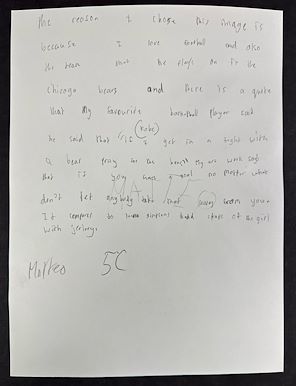 The reason I chose this image is
because I love football and also
the team that he plays on is the
Chicago bears and there is a quote
that my favourite basketball player said
(Kobe)
he said that "if I get in a fight with
a bear pray for the bear"
that if you have a goal no matter what
don't let anybody take that away from you
It compares to homer simpsons of the girl
with
Matteo 5C